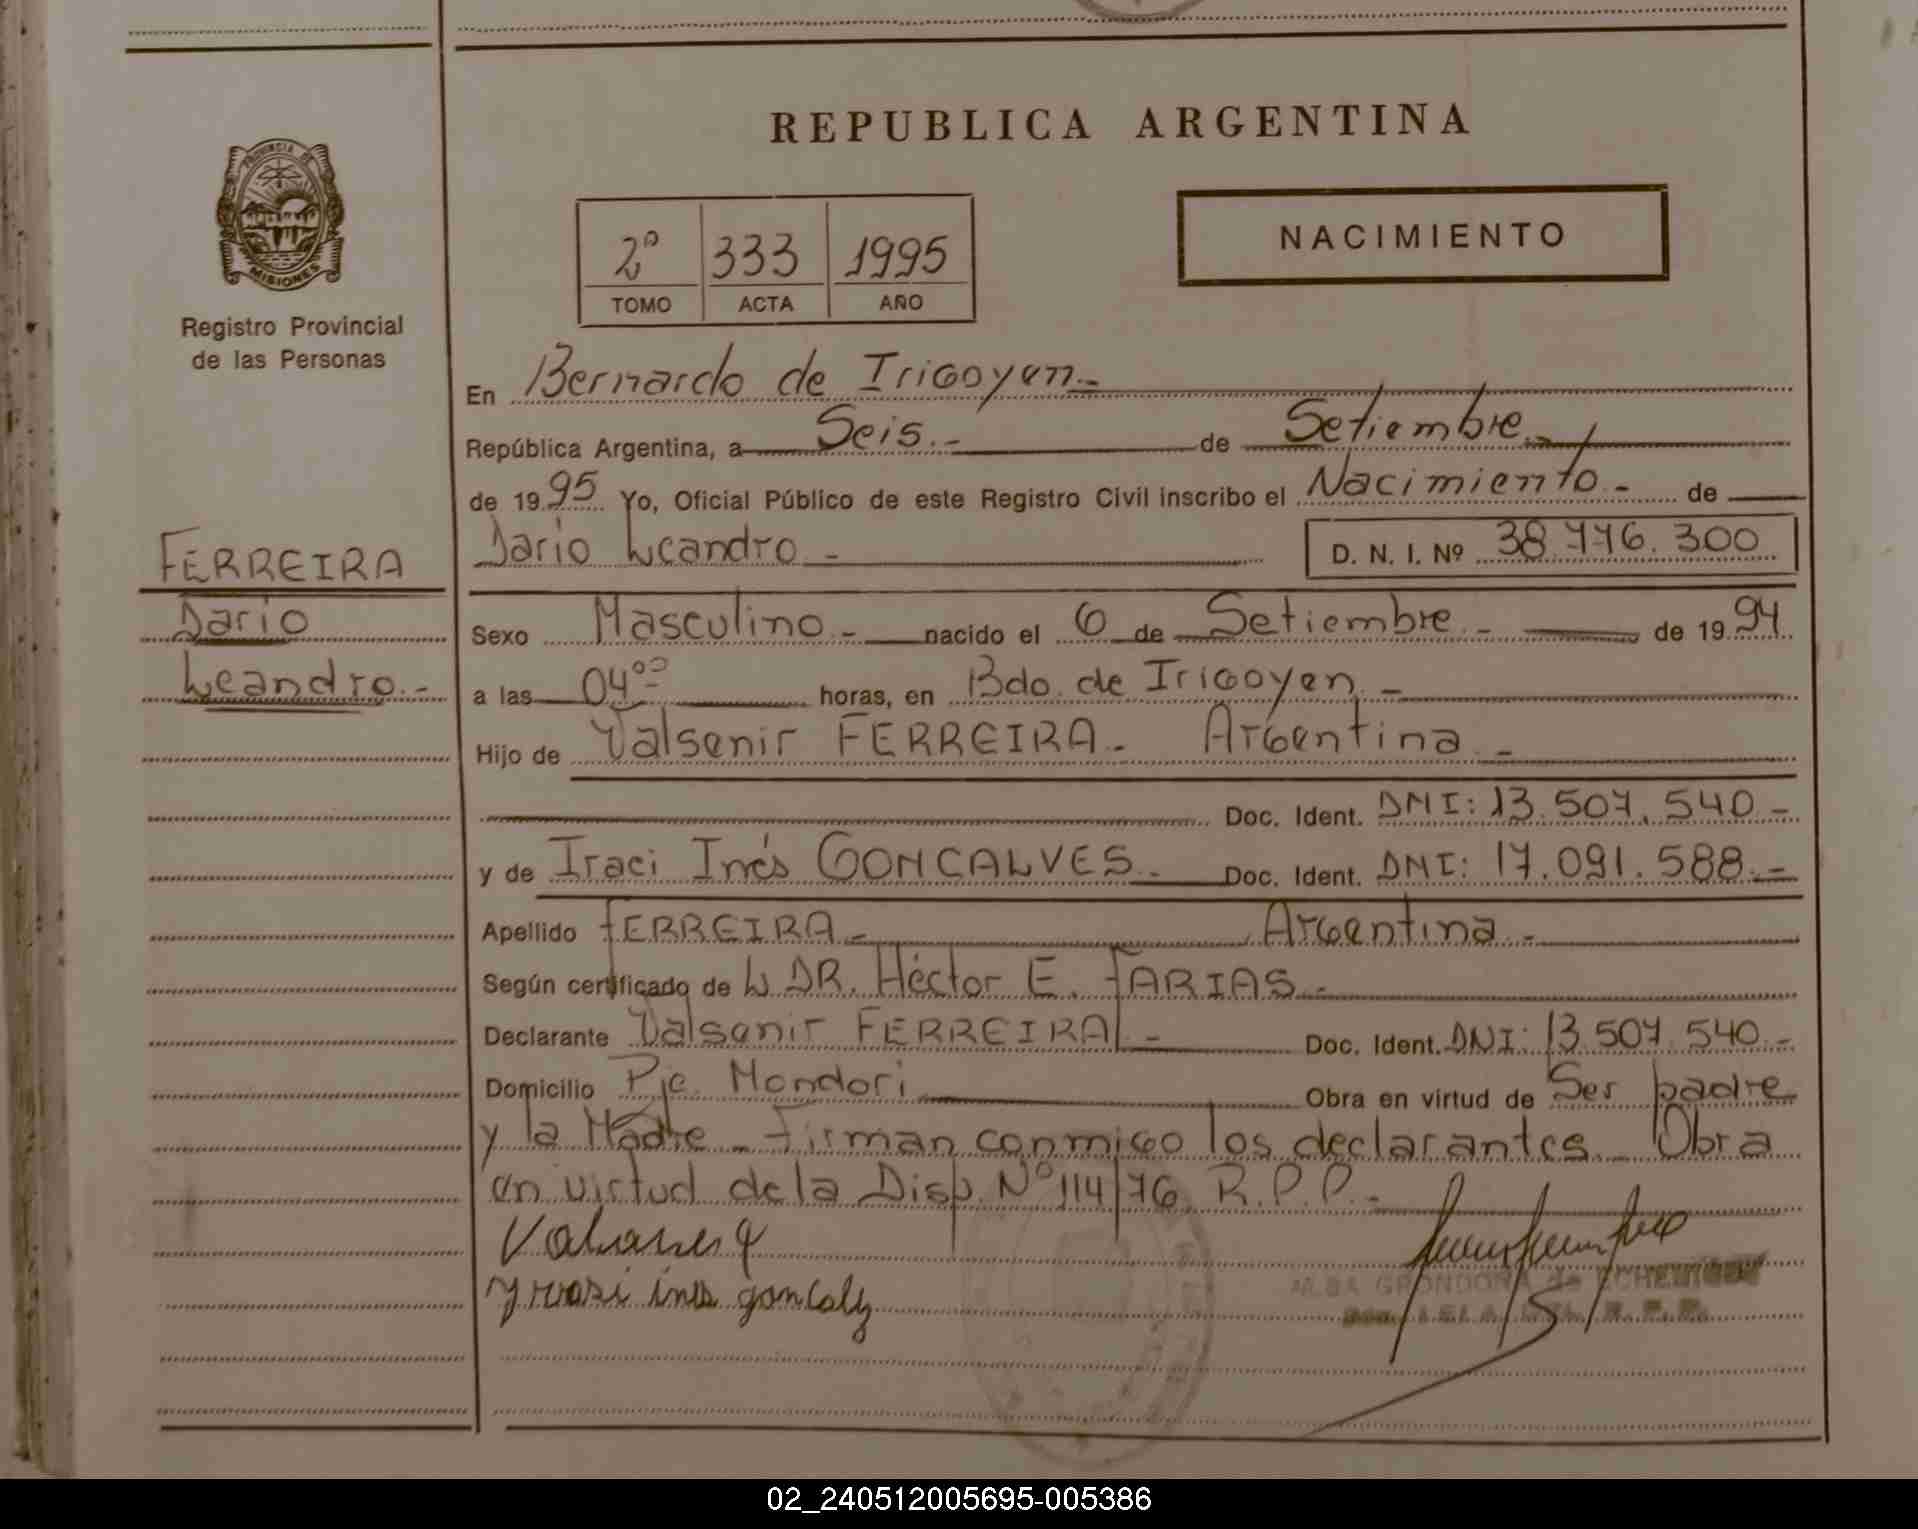 REPUBLICA ARGENTINA
PROVINCIA DE
MISIONES
Registro Provincial
de las Personas
2º 333 1995
TOMO ACTA AÑO
NACIMIENTO
En Bernardo de Irigoyen.-
República Argentina, a Seis.- de Setiembre.-
de 19 95 Yo, Oficial Público de este Registro Civil inscribo el Nacimiento - de
Dario Leandro - D. N. I. Nº 38.776.300
FERREIRA
Dario
Leandro.-
Sexo Masculino - nacido el 6 de Setiembre - de 19 94
a las 04ºº horas, en Bdo. de Irigoyen -
Hijo de Valsenir FERREIRA - Argentina -
Doc. Ident. DNI: 13.507.540 -
y de Iraci Inés GONCALVES.- Doc. Ident. DNI: 17.091.588.-
Apellido FERREIRA - Argentina -
Según certificado de DR. Héctor E. FARIAS.-
Declarante Valsenir FERREIRA - Doc. Ident. DNI: 13.507.540 -
Domicilio Pje. Mondori Obra en virtud de Ser padre
y la Madre - Firman conmigo los declarantes - Obra
en virtud de la Disp. Nº 114/76 R.P.P.-
ALBA GRONDONA de
02_240512005695-005386